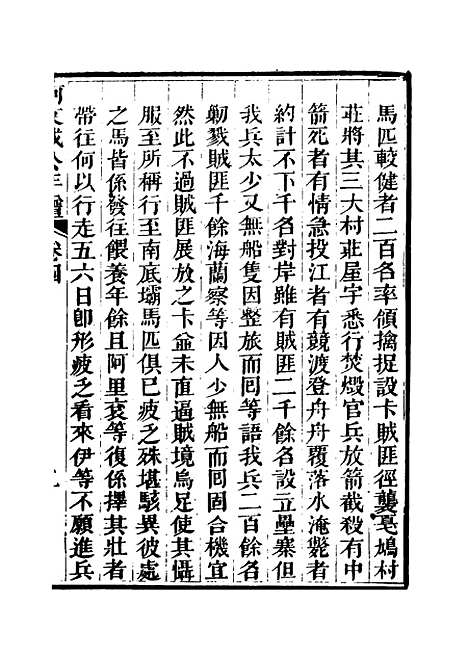 馬匹較健者二百名率領擒捉設卡賊匪徑襲戞鳩村
莊將其三大村莊星宇悉行焚燬官兵放箭截殺有中
箭死者有情急投江者有競渡登舟舟覆落水淹斃者
約計不下千名對岸雖有賊匪二千餘名設立壘寨但
我兵太少又無船隻因整旅而囘等語我兵二百餘名
剿戮賊匪千餘海蘭察等因人少無船而囘固合機宜
然此不過賊匪展放之卡並未直逼賊境烏足使其懾
服至所稱行至南底壩馬匹俱已疲乏殊堪駭異彼處
之馬皆係發往餵養年餘且阿里衮等復係擇其壯者
帶往何以行走五六日卽形疲乏看來伊等不願進兵
阿文成公年譜 卷四
九